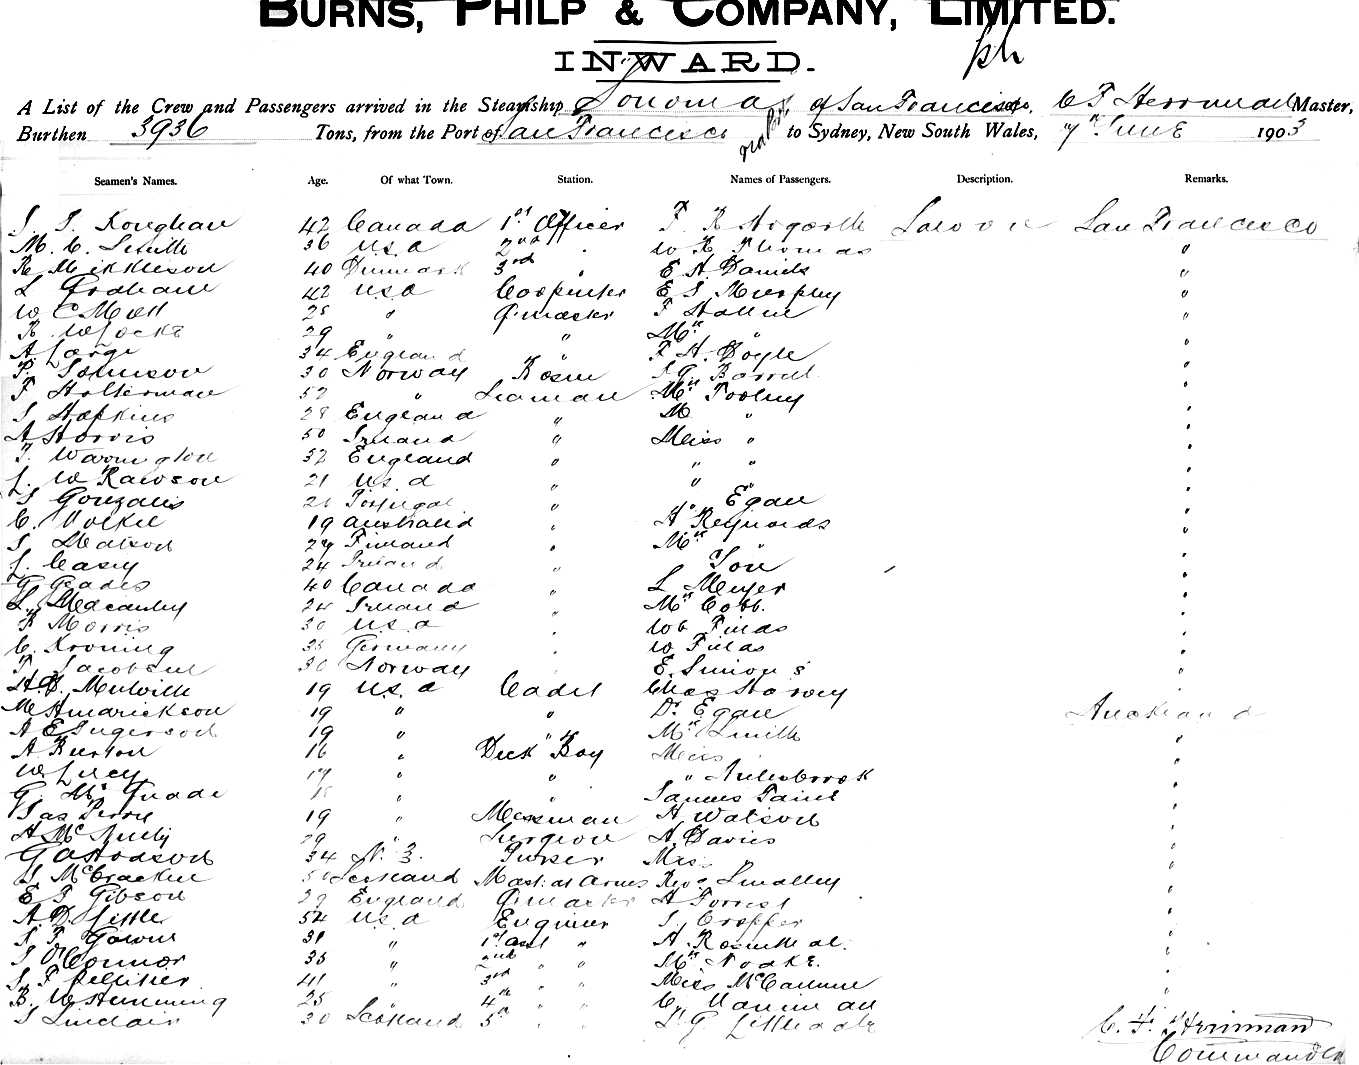 BURNS, PHILP & COMPANY, LIMITED.
INWARD.
A List of the Crew and Passengers arrived in the Steamship Sonoma of San Francisco, C F Herriman Master,
Burthen 3936 Tons, from the Port of San Francisco to Sydney, New South Wales, 7th June 1903
Seamen's Names. Age. Of what Town. Station. Names of Passengers. Description. Remarks.
42 Canada 1st Officer Saloon San Francisco
M. C. Smith 36 U.S.A 2nd " W K Thomas "
K Mikkleson 40 Denmark 3rd " E A Daniels "
L Graham 42 U.S.A Carpenter E S Murphy "
28 " Q.master "
29 " " Mrs " "
A. Large 34 England " F H. Doyle "
P. Johnson 30 Norway Bosun "
F Holterman 52 " Seaman Mrs Tooley "
S Hopkins 28 England " M "
A Harris 50 Ireland " Miss " "
T. Warrington 32 England " " " "
L. W Rawson 21 U.S.A " " " "
S Gonzales Portugal " " Egan "
C. 19 Australia " A Reynolds "
29 Finland " Mrs " "
L. Casey 24 Ireland " Son "
G Geades 40 Canada " L Meyer "
L. Macauley 24 Ireland " Mrs Cobb. "
F Morris 30 U.S.A " "
C. Kroning 35 Germany " "
T Jacobsen 30 Norway " E. Simons "
H. D. Melville 19 U.S.A Cadet Chas Harvey "
M Hendrickson 19 " " Dr Egan Auckland
A E Ingerson 19 " " Mrs Smith "
A Burton 16 " Deck Boy Miss "
W Lucy 17 " " " "
G. 18 " " James "
Jas Perry 19 " Messman A Watson "
29 " Surgeon A Davies "
G A Hodson 34 N. Z. Purser Mrs " "
S McCracken Scotland Mast. at Arms Revd Smalley "
E J Gibson 29 England Q.master A Forrest "
A. D. Little 54 U.S.A Engineer J. Cropper "
31 " 1st asst " A Rosenthal. "
J O'Connor 35 " 2nd " " "
41 " 3rd " " Miss "
B. W Hemming 25 " 4th " " "
J Sinclair 30 Scotland 5th " "
C. F. Herriman
Commander